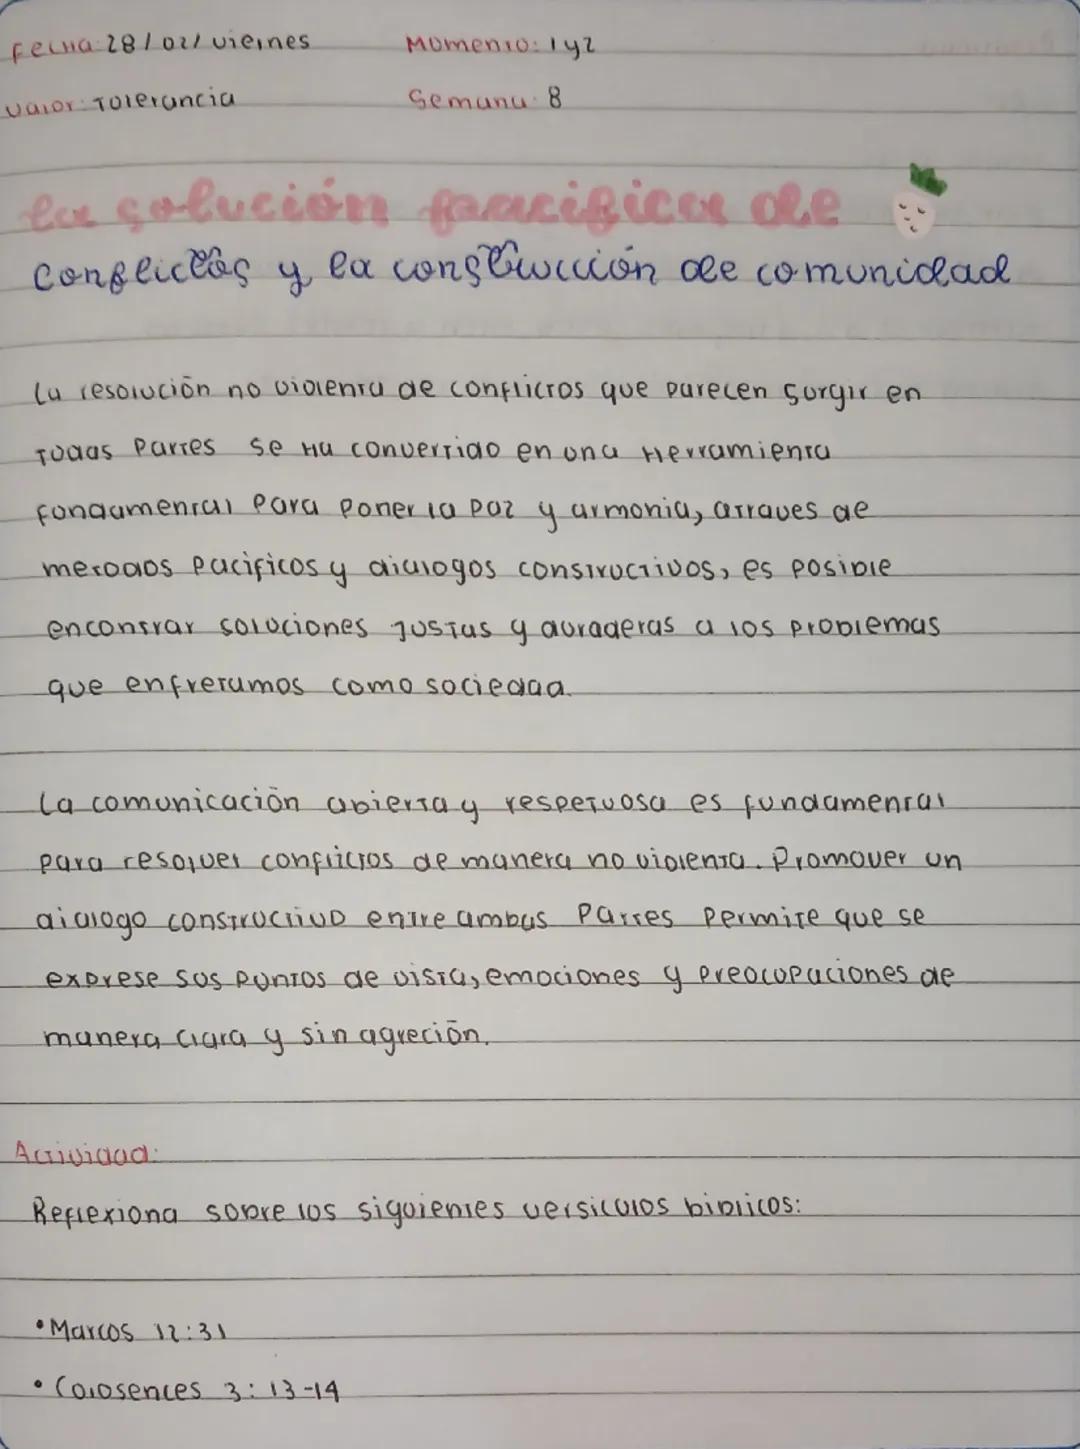 Fecha: 28/02/ viernes Momento: 1 y 2
Valor: Tolerancia Semana: 8
La solución pacifica de
conflictos y la construcción de comunidad
La resolución no violenta de conflictos que parecen surgir en
todas partes se ha convertido en una Herramienta
fundamental para poner la paz y armonia, atraves de
metodos pacificos y dialogos constructivos, es posible
encontrar soluciones justas y duraderas a los problemas
que enfretamos como sociedad.
La comunicación abierta y respetuosa es fundamental
para resolver conflictos de manera no violenta. Promover un
dialogo constructivo entre ambas partes permite que se
exprese sus puntos de vista, emociones y preocupaciones de
manera clara y sin agreción.
Actividad:
Reflexiona sobre los siguientes versiculos biblicos:
• Marcos 12:31
• Colosences 3: 13-14